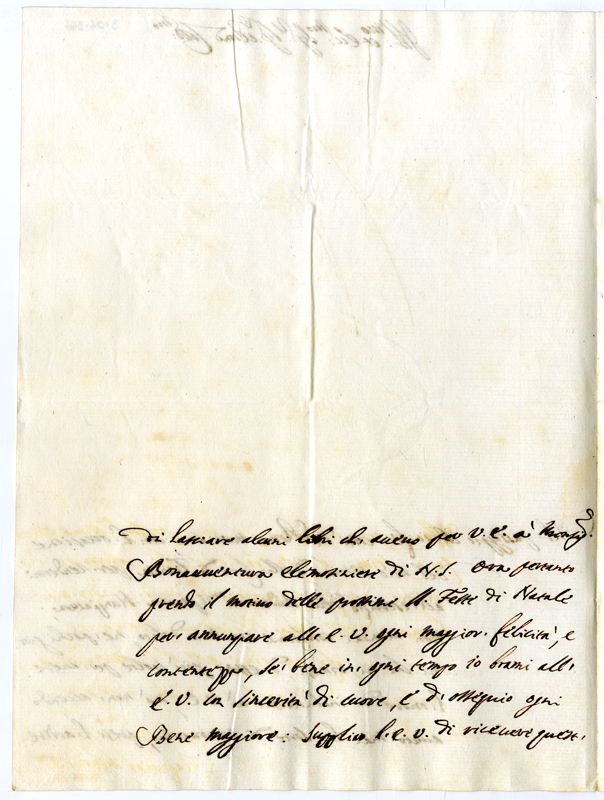 di lasciare alcuni libri che avevo per V. E. à Monsig.r
Bonauuentura elemosiniere di N.S. Ora pertanto
prendo il motivo delle prossime SS. Feste di Natale
per annunziare all' E. V. ogni maggior felicità, e
contentezza, se bene in ogni tempo io brami all'
E. V. con sincerità di cuore, e d'ossequio ogni
Bene maggiore. Supplico l'E. V. di ricevere quest'